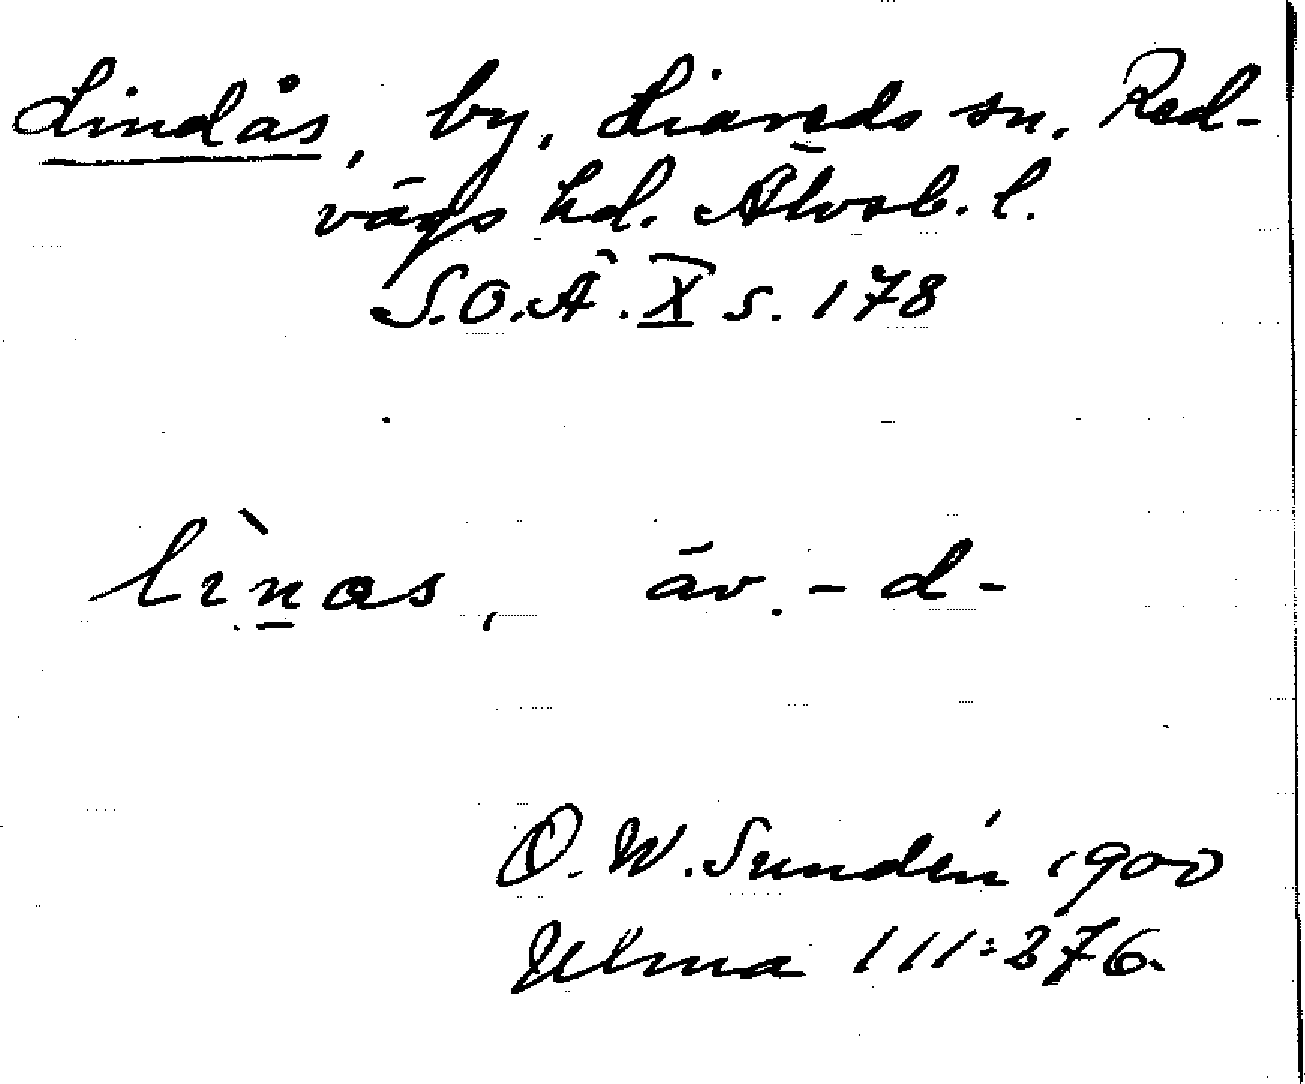 Lindås, by, Liareds sn. Red-
vägs hd. Älvsb. l.
S.O.Ä. X s. 178
lìnas, äv. -d-
O. W. Sundén 1900
Ulma 111:276.